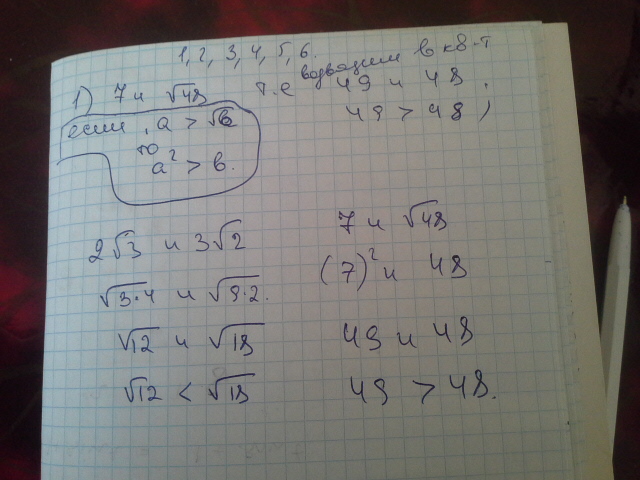 1, 2, 3, 4, 5, 6.
1) 7 и √48 т.е возводим в кв-т
49 и 48.
49 > 48)
если, a > √b
то
a² > b.
2√3 и 3√2
√3·4 и √9·2.
√12 и √18
√12 < √18
7 и √48
(7)² и 48
49 и 48
49 > 48.